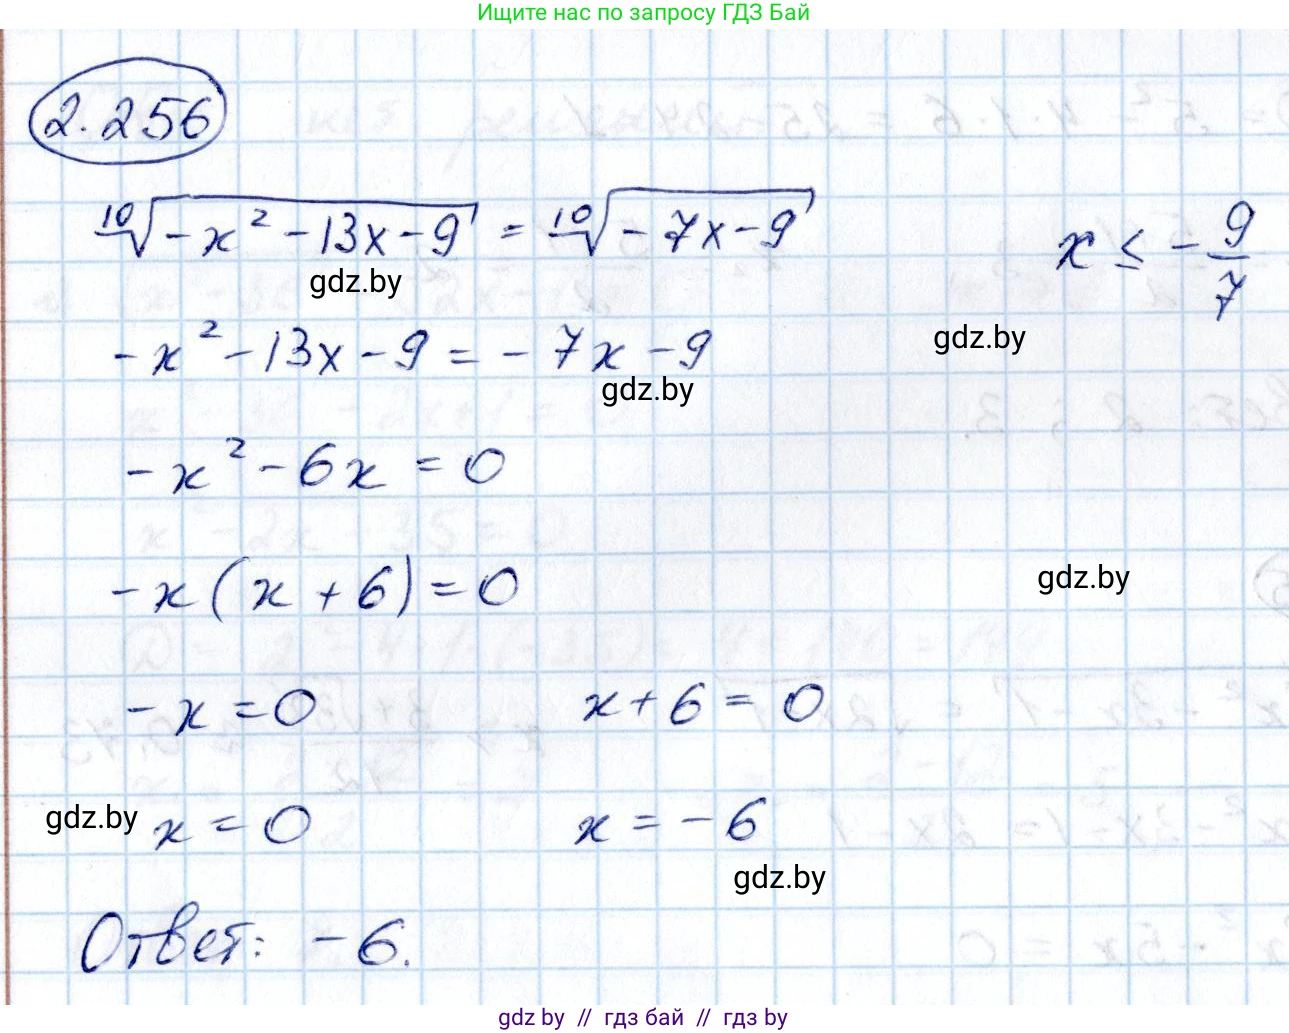 Ищите нас по запросу ГДЗ Бай
2.256
¹⁰√(-x² - 13x - 9) = ¹⁰√(-7x - 9)    x ≤ -9/7
gdz.by
gdz.by
-x² - 13x - 9 = -7x - 9
gdz.by
-x² - 6x = 0
-x(x + 6) = 0
gdz.by
-x = 0    x + 6 = 0
gdz.by
x = 0    x = -6
gdz.by
Ответ: -6.
gdz.by // гдз бай // гдз by